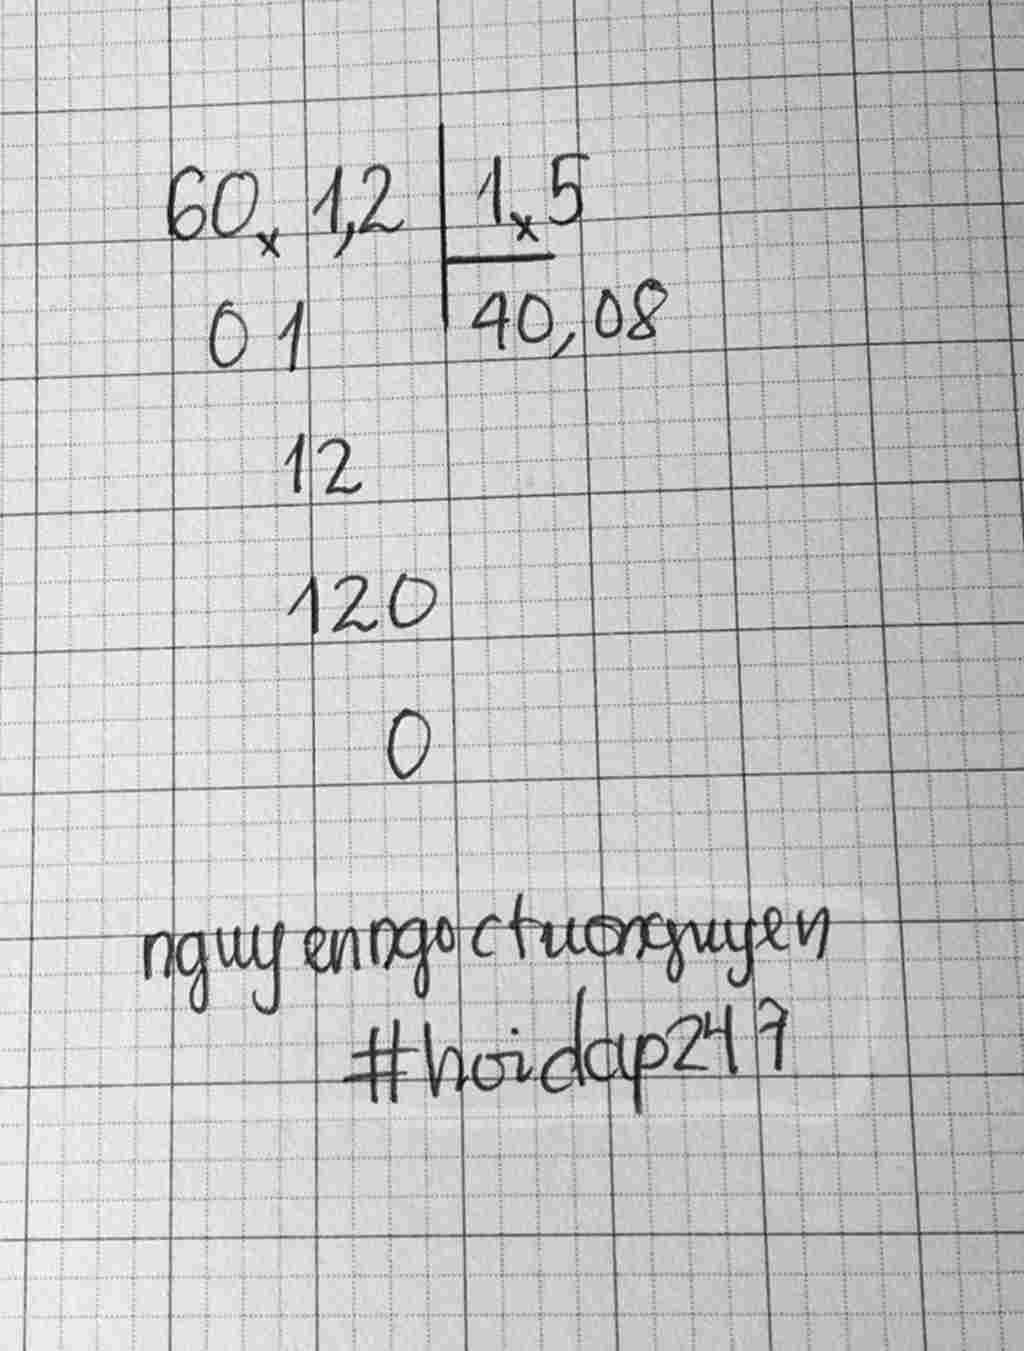 60ₓ 1,2 | 1ₓ5
0 1 | 40,08
12
120
0
nguyenngoctuongnuyen
#hoidap247